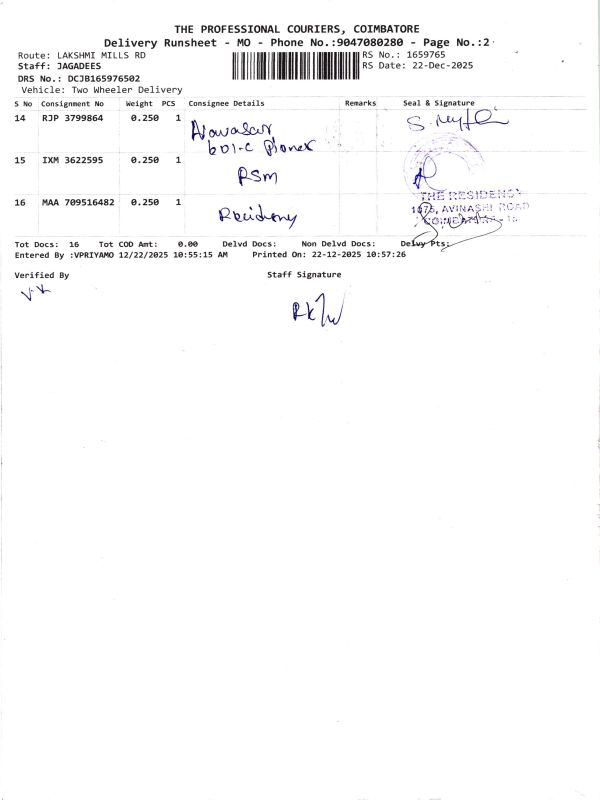 THE PROFESSIONAL COURIERS, COIMBATORE
Delivery Runsheet - MO - Phone No.:9047080280 - Page No.:2
Route: LAKSHMI MILLS RD
RS No.: 1659765
Staff: JAGADEES
RS Date: 22-Dec-2025
DRS No.: DCJB165976502
Vehicle: Two Wheeler Delivery
S No Consignment No Weight PCS Consignee Details Remarks Seal & Signature
14 RJP 3799864 0.250 1
601-C
15 IXM 3622595 0.250 1 RSM
16 MAA 709516482 0.250 1
THE RESIDENCY
1076, AVINASHI ROAD
Tot Docs: 16 Tot COD Amt: 0.00 Delvd Docs: Non Delvd Docs: Delvy Pts:
Entered By :VPRIYAMO 12/22/2025 10:55:15 AM Printed On: 22-12-2025 10:57:26
Verified By Staff Signature